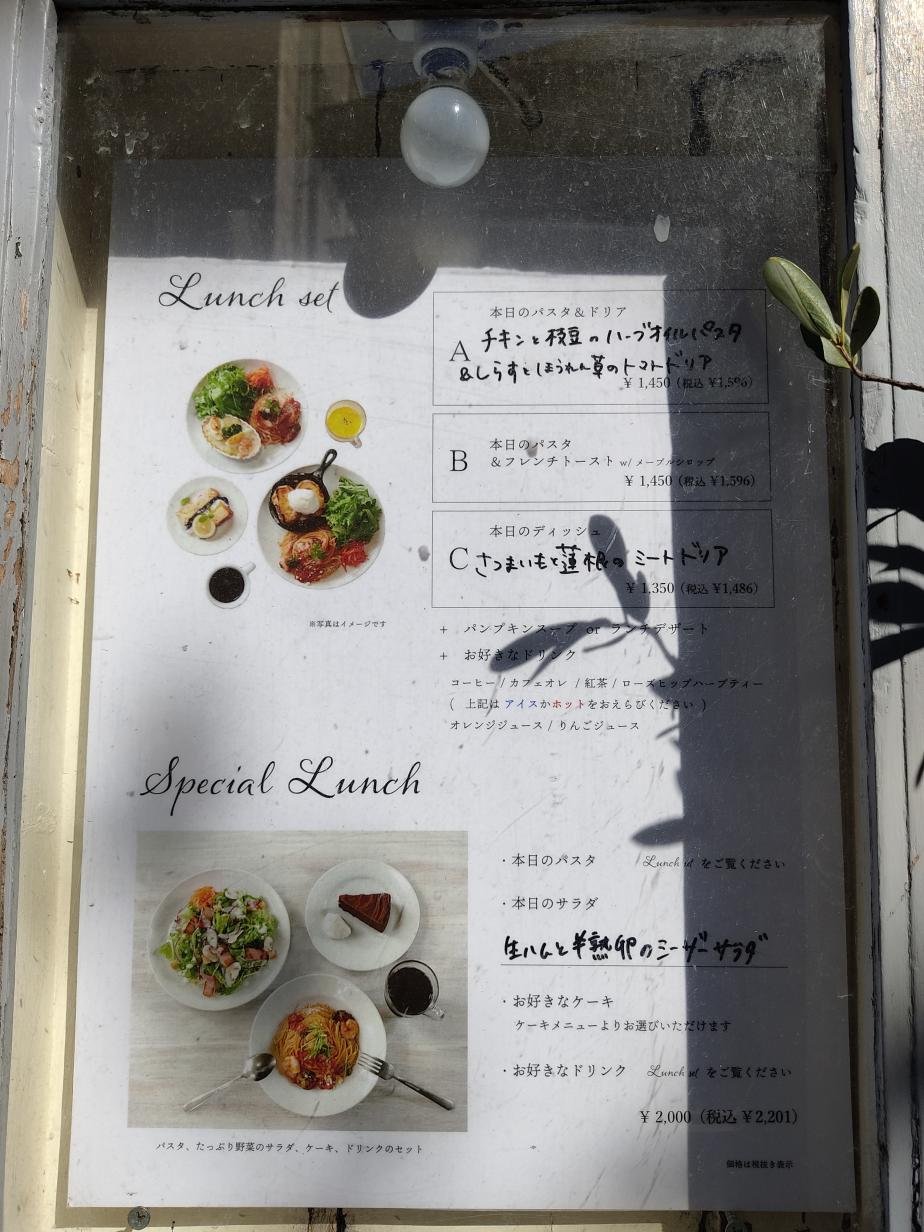 Lunch set
本日のパスタ＆ドリア
A
チキンと枝豆のハーブオイルパスタ
&しらすとほうれん草のトマトドリア
¥ 1,450（税込 ¥1,596）
B
本日のパスタ
＆フレンチトースト w/ メープルシロップ
¥ 1,450（税込 ¥1,596）
本日のディッシュ
C さつまいもと蓮根のミートドリア
¥ 1,350（税込 ¥1,486）
※写真はイメージです
+ パンプキンスープ or ランチデザート
+ お好きなドリンク
コーヒー / カフェオレ / 紅茶 / ローズヒップハーブティー
( 上記は アイスかホットをおえらびください )
オレンジジュース / りんごジュース
Special Lunch
・本日のパスタ Lunch set をご覧ください
・本日のサラダ
生ハムと半熟卵のシーザーサラダ
・お好きなケーキ
ケーキメニューよりお選びいただけます
・お好きなドリンク Lunch set をご覧ください
¥ 2,000（税込 ¥2,201）
パスタ、たっぷり野菜のサラダ、ケーキ、ドリンクのセット
価格は税抜き表示